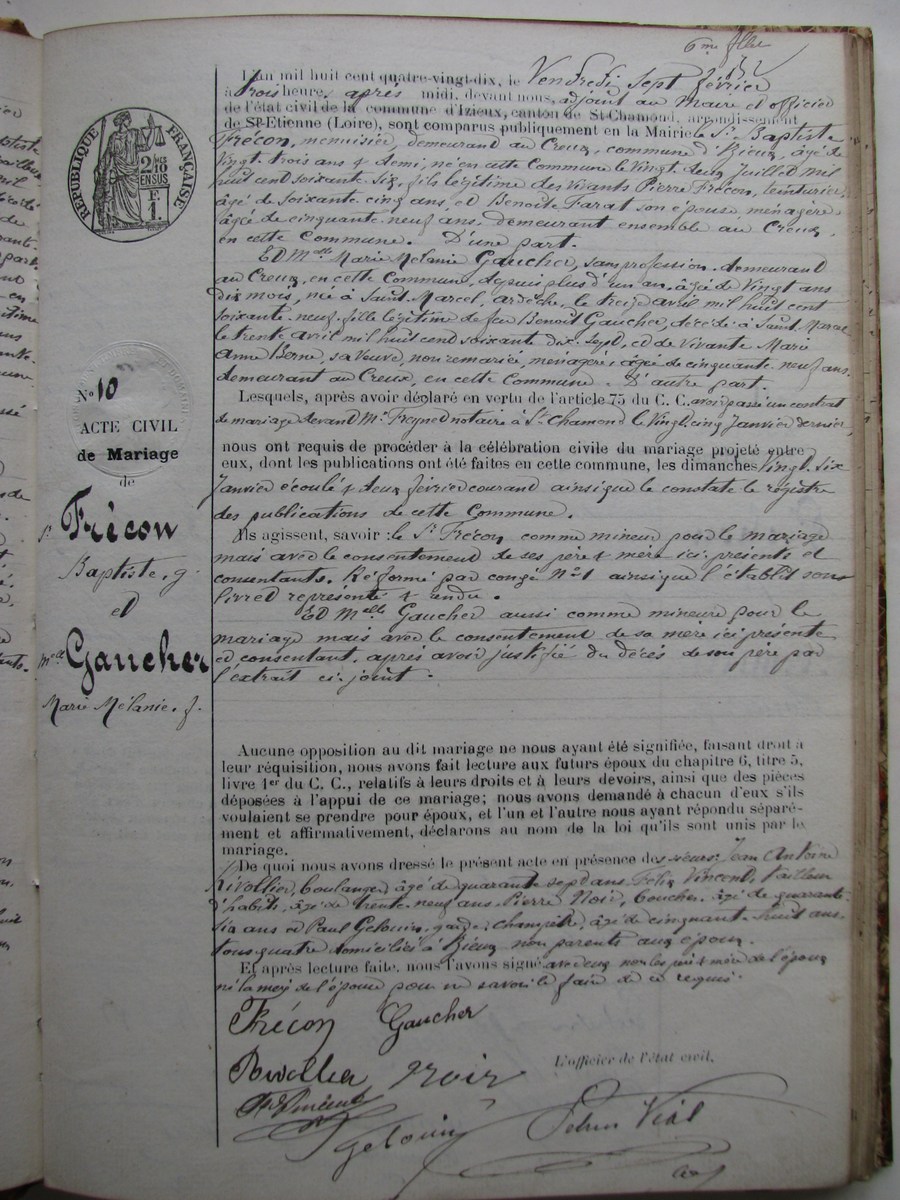 6me fllet
L'an mil huit cent quatre-vingt-dix, le Vendredi sept février
à trois heures après midi, devant nous, adjoint au Maire et officier
de l'état civil de la commune d'Izieux, canton de St-Chamond, arrondissement
de St-Etienne (Loire), sont comparus publiquement en la Mairie le Sr Baptiste
Frécon, menuisier, demeurant au Creux, commune d'Izieux, âgé de
Vingt trois ans & demi, né en cette Commune le Vingt deux Juillet mil
huit cent soixante six, fils légitime des vivants Pierre Frécon, teinturier,
âgé de soixante cinq ans, et Benoîte Farat son épouse, ménagère
âgée de cinquante neuf ans, demeurant ensemble au Creux,
en cette Commune. D'une part.
Et Melle Marie Mélanie Gaucher, sans profession, demeurant
au Creux, en cette Commune, depuis plus d'un an, âgée de Vingt ans
dix mois, née à Saint Marcel, ardèche, le treize avril mil huit cent
soixante-neuf, fille légitime de feu Benoît Gaucher, décédé à Saint Marcel
le trente avril mil huit cent soixante dix-sept, et de Vivante Marie
Anne Berne, sa veuve, non remariée, ménagère, âgée de cinquante neuf ans,
demeurant au Creux, en cette Commune. D'autre part.
Lesquels, après avoir déclaré en vertu de l'article 75 du C. C. avoir passé un contrat
de mariage devant Me notaire à St Chamond le Vingt cinq Janvier dernier,
nous ont requis de procéder à la célébration civile du mariage projeté entre
eux, dont les publications ont été faites en cette commune, les dimanches Vingt six
Janvier écoulé & deux février courant ainsi que le constate le régistre
des publications de cette Commune.
Ils agissent, savoir : le Sr Frécon comme mineur pour le mariage
mais avec le consentement de ses père & mère ici présents et
consentants. Réformé par congé No 1 ainsi que l'établit son
livret représenté & rendu.
Et Melle Gaucher aussi comme mineure pour le
mariage mais avec le consentement de sa mère ici présente
et consentant, après avoir justifié du décès de son père par
l'extrait ci-joint.
Aucune opposition au dit mariage ne nous ayant été signifiée, faisant droit à
leur réquisition, nous avons fait lecture aux futurs époux du chapitre 6, titre 5,
livre 1er du C. C., relatifs à leurs droits et à leurs devoirs, ainsi que des pièces
déposées à l'appui de ce mariage; nous avons demandé à chacun d'eux s'ils
voulaient se prendre pour époux, et l'un et l'autre nous ayant répondu séparé-
ment et affirmativement, déclarons au nom de la loi qu'ils sont unis par le
mariage.
De quoi nous avons dressé le présent acte en présence des sieurs: Jean Antoine
Rivollier, boulanger, âgé de quarante sept ans, Félix Vincent, tailleur
d'habits, âgé de trente-neuf ans, Pierre Noir, boucher, âgé de quarante
six ans et Paul Gelouin, garde-champêtre, âgé de cinquante-huit ans,
tous quatre domiciliés à Izieux, non parents aux époux.
Et après lecture faite, nous l'avons signé avec eux, non les père & mère de l'époux
ni la mère de l'épouse pour ne savoir le faire de ce requis.
Frécon Gaucher
Rivollier Noir
L'officier de l'état civil,
Vincent
Gelouin
Vial
RÉPUBLIQUE FRANÇAISE
2/10 EN SUS
1 F.
No 10
ACTE CIVIL
de Mariage
de
Sr Frécon
Baptiste, g.
et
Melle Gaucher
Marie Mélanie. f.